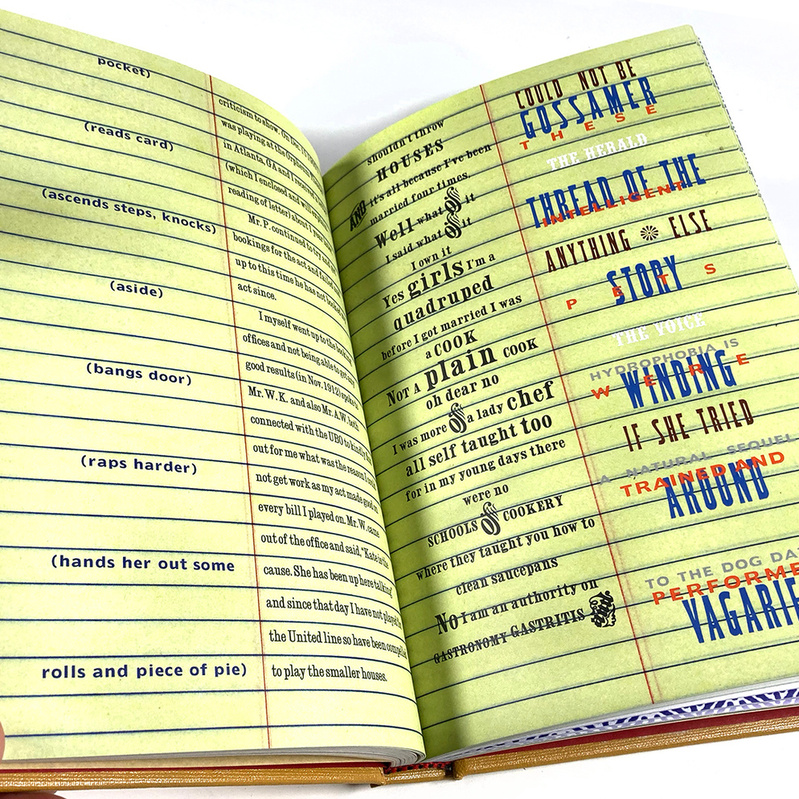 pocket)
(reads card)
(ascends steps, knocks)
(aside)
(bangs door)
(raps harder)
(hands her out some
rolls and piece of pie)
criticism to show. On
was playing at the Orpheum
in Atlanta, GA and
(which I enclosed and will
reading of letter) about
Mr. P. continued to try and
bookings for the act and
up to this time he has not booked
act since.
I myself went up to the
offices and not being able to get any
good results (in Nov. 1912)
Mr. W.K. and also Mr. A.W.
connected with the UBO to kindly
out for me what was the reason I could
not get work as my act made good on
every bill I played on. Mr. W. came
out of the office and said, "Kate is the
cause. She has been up here talking"
and since that day I have not played
the United line so have been compelled
to play the smaller houses.
shouldn't throw
HOUSES
AND it's all because I've been
married four times
Well what OF it
I said what OF it
I own it
Yes girls I'm a
quadruped
before I got married I was
a COOK
NOT A plain COOK
oh dear no
I was more OF a lady chef
all self taught too
for in my young days there
were no
SCHOOLS OF COOKERY
where they taught you how to
clean saucepans
No I am an authority on
GASTRONOMY GASTRITIS
COULD NOT BE
GOSSAMER
THESE
THE HERALD
THREAD OF THE
INTELLIGENT
ANYTHING ELSE
STORY
PETS
THE VOICE
HYDROPHOBIA IS
WERE
WINDING
IF SHE TRIED
A NATURAL SEQUEL
TRAINED AND
AROUND
TO THE DOG DA
PERFORME
VAGARIE